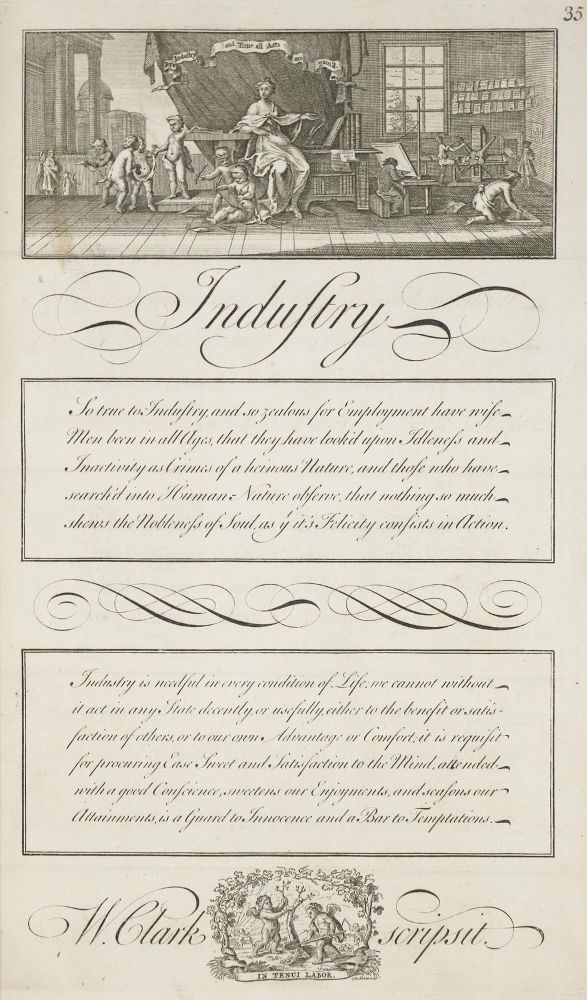 35
By Industry and Time all Arts are gain'd
Induſtry
So true to Induſtry, and so zealous for Employment have wiſe
Men been in all Ages, that they have look'd upon Idleneſs and
Inactivity as Crimes of a heinous Nature, and thoſe who have
search'd into Human-Nature obſerve, that nothing so much
shews the Nobleneſs of Soul, as yͭ it's Felicity conſists in Action.
Industry is needful in every condition of Life; we cannot without
it act in any State decently, or uſefully, either to the benefit or satis-
faction of others, or to our own Advantage or Comfort; it is requiſit
for procuring Ease Sweet and Satisfaction to the Mind, attended
with a good Conſcience, sweetens our Enjoyments, and seaſons our
Attainments, is a Guard to Innocence and a Bar to Temptations.
W. Clark scripsit.
IN TENUI LABOR.